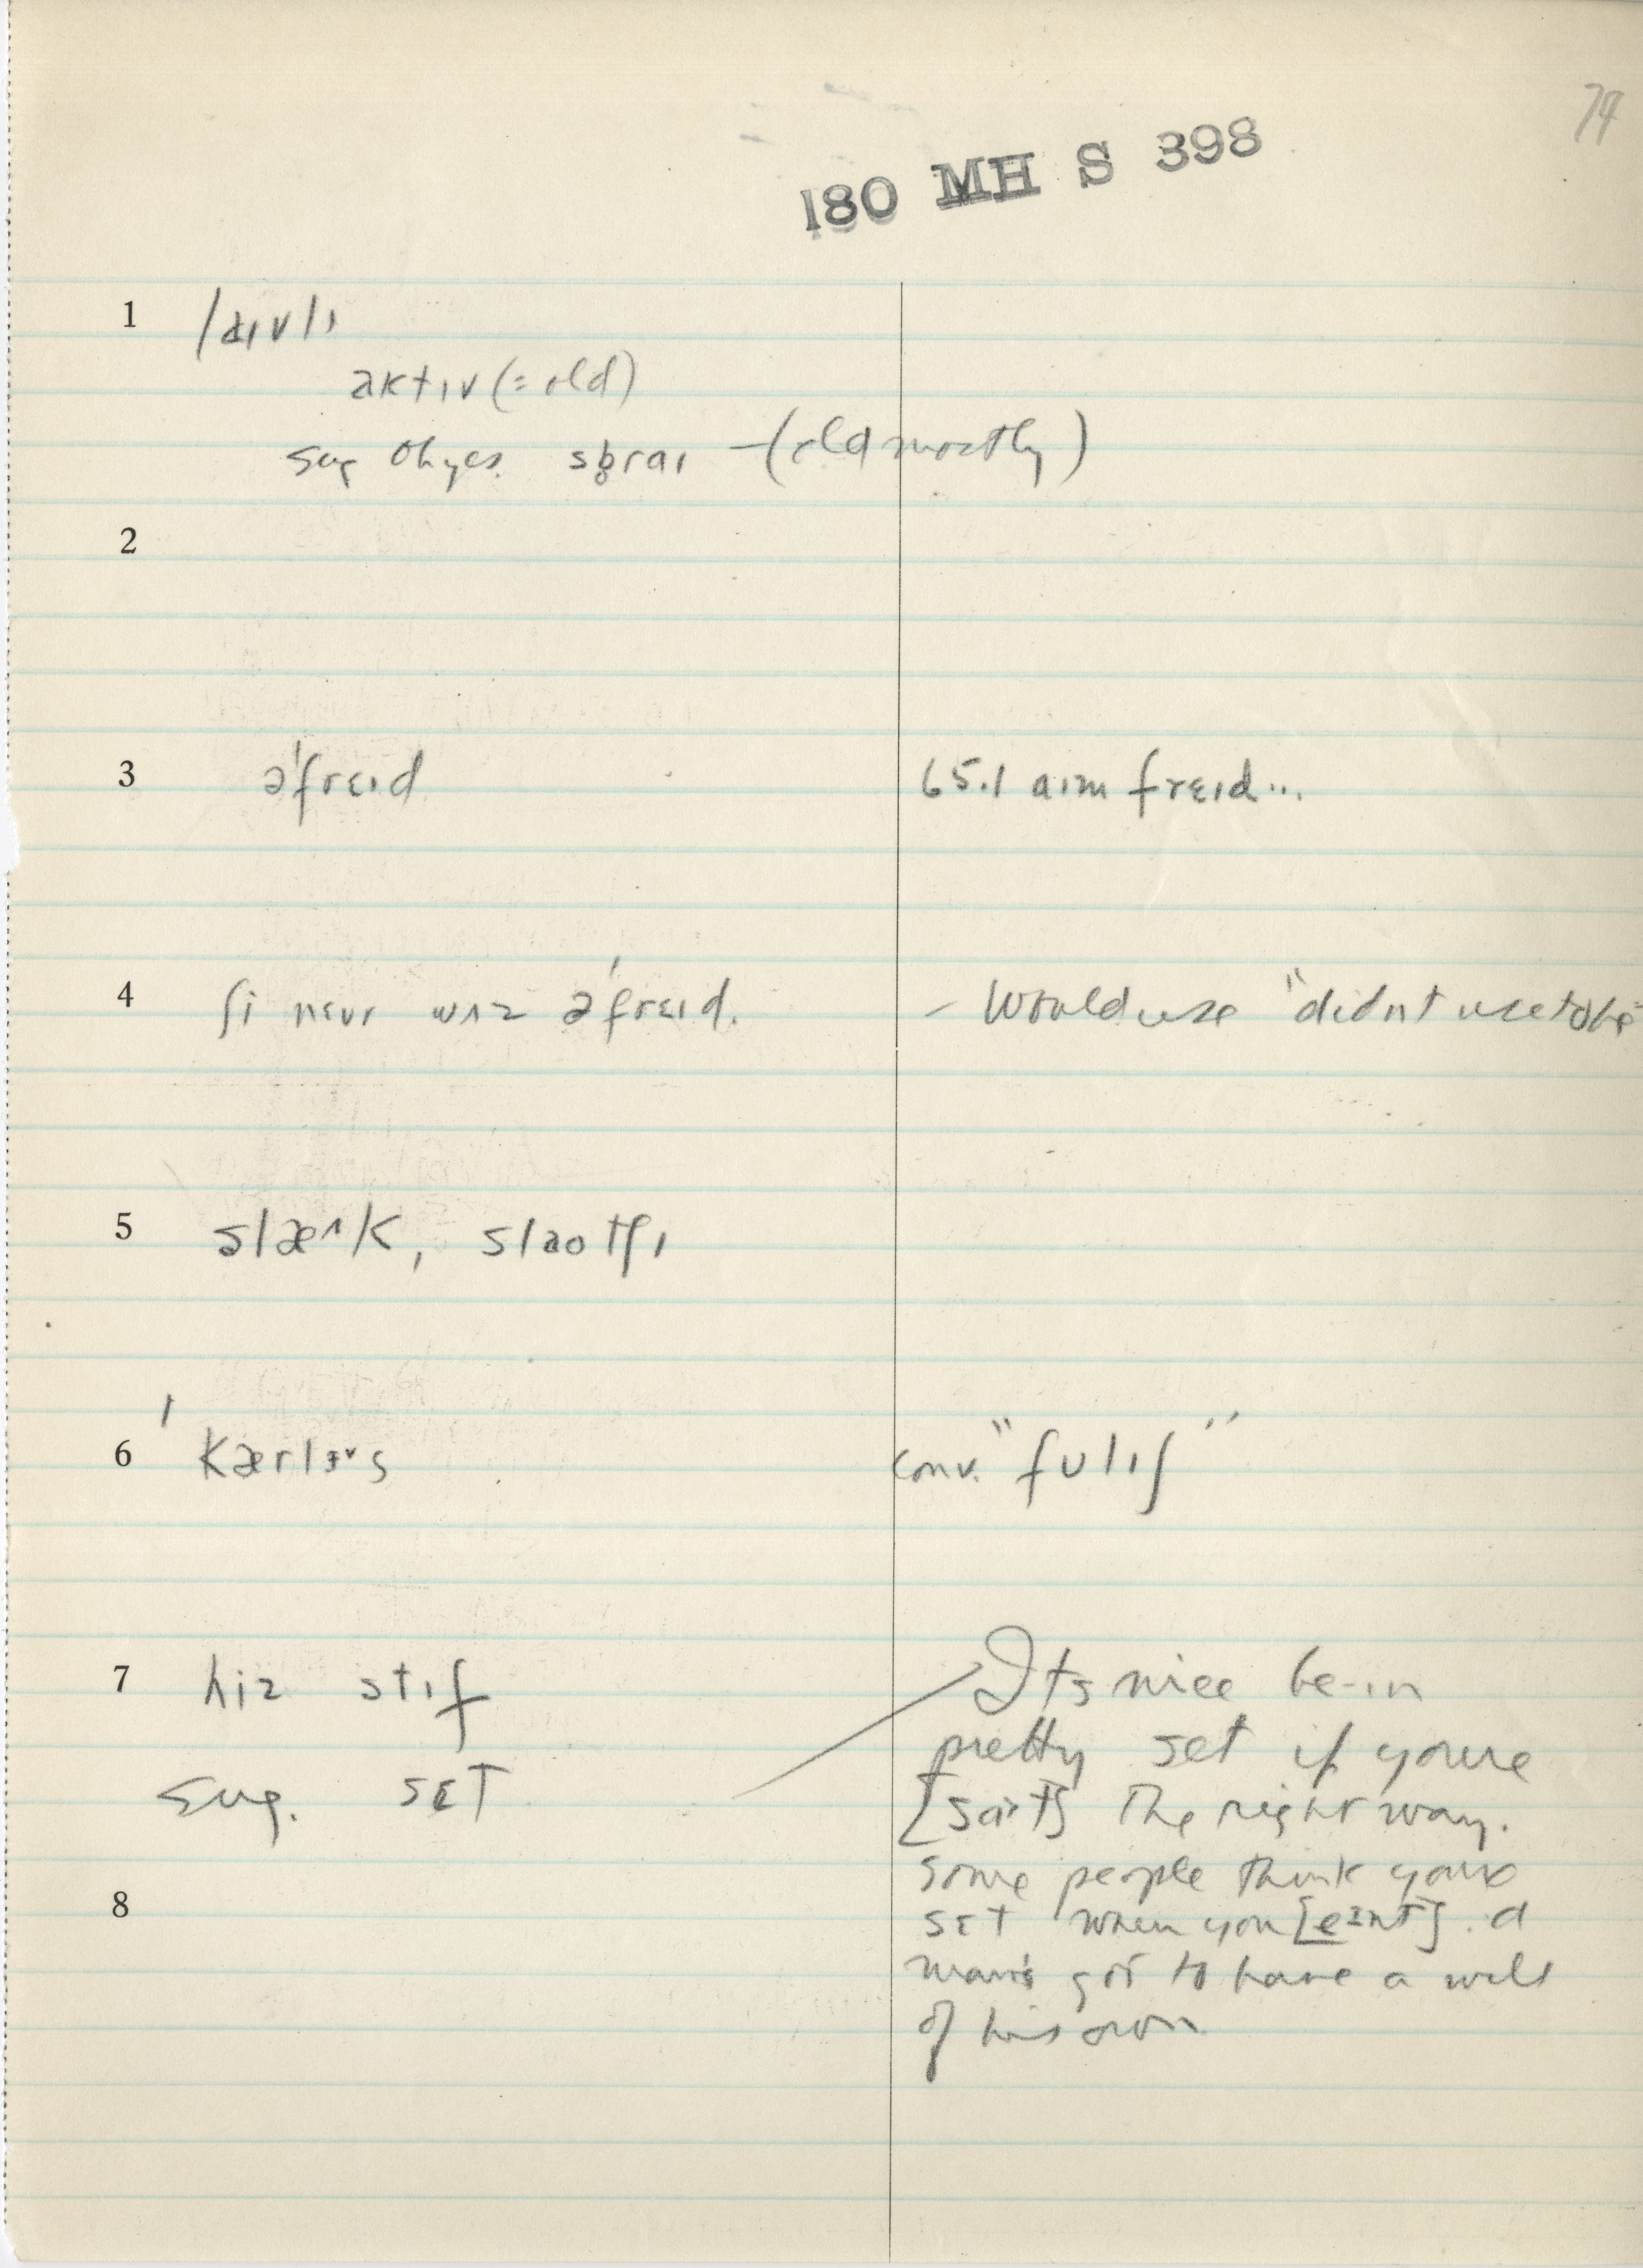 74
180 MH S 398
1 lɪvlɪ
æktɪv (= old)
sug Oh yes. sprɑɪ — (old mostly)
2
3 əˈfrɛɪd 65.1 aɪm frɛɪd...
4 ʃi nɛvr wʌz əˈfrɛɪd. – Would use "didnt use to be"
5 slæ^k, slaotʃɪ
6 ˈkærləs conv. "fulɪʃ"
7 hiz stɪf Its nice be-in
pretty set if youre
sug. sɛt [sɑt] the right way.
Some people think your
8 sɛt when you [eɪnt]. A
man's got to have a will
of his own